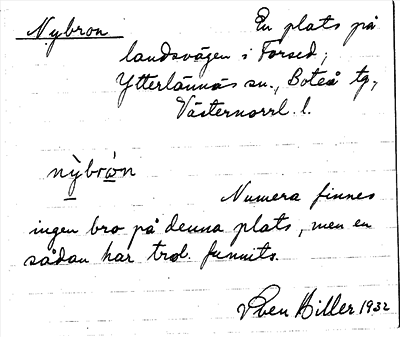 Nybron
En plats på
landsvägen i Forsed,
Ytterlännäs sn., Boteå tg,
Västernorrl. l.
nỳbrǫ́n
Numera finnes
ingen bro på denna plats, men en
sådan har trol. funnits.
Sven Hiller 1932